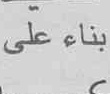 بناء على